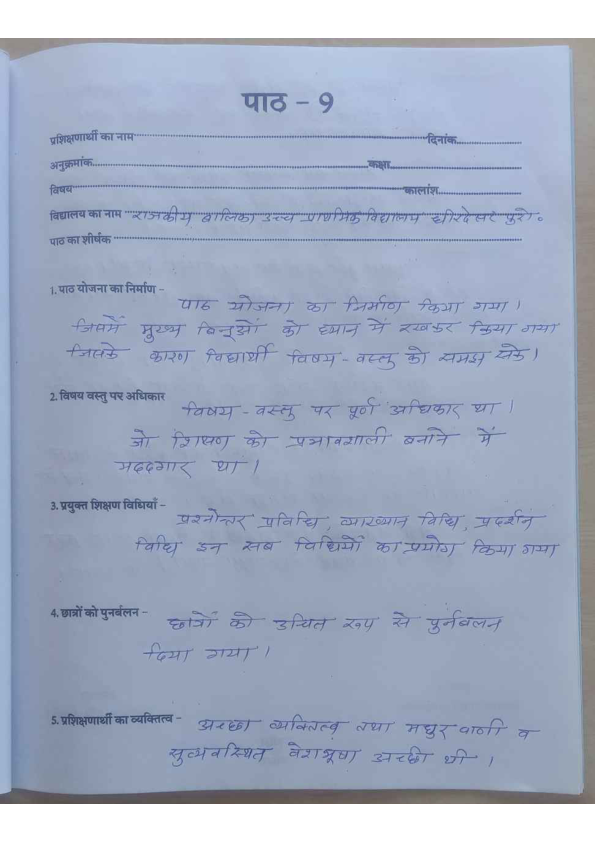 पाठ - 9
प्रशिक्षणार्थी का नाम दिनांक
अनुक्रमांक कक्षा
विषय कालांश
विद्यालय का नाम राजकीय बालिका उच्च प्राथमिक विद्यालय धीरदेसर पुरो॰
पाठ का शीर्षक
1. पाठ योजना का निर्माण - पाठ योजना का निर्माण किया गया।
जिसमें मुख्य बिन्दूओं को ध्यान में रखकर किया गया
जिसके कारण विद्यार्थी विषय - वस्तु को समझ सके।
2. विषय वस्तु पर अधिकार विषय - वस्तु पर पूर्ण अधिकार था।
जो शिक्षण को प्रभावशाली बनाने में
मददगार था।
3. प्रयुक्त शिक्षण विधियाँ - प्रश्नोत्तर प्रविधि, व्याख्यान विधि, प्रदर्शन
विधि इन सब विधियों का प्रयोग किया गया
4. छात्रों को पुनर्बलन - छात्रों को उचित रूप से पुर्नबलन
दिया गया।
5. प्रशिक्षणार्थी का व्यक्तित्व - अच्छा व्यक्तित्व तथा मधुर वाणी व
सुव्यवस्थित वेशभूषा अच्छी थी।